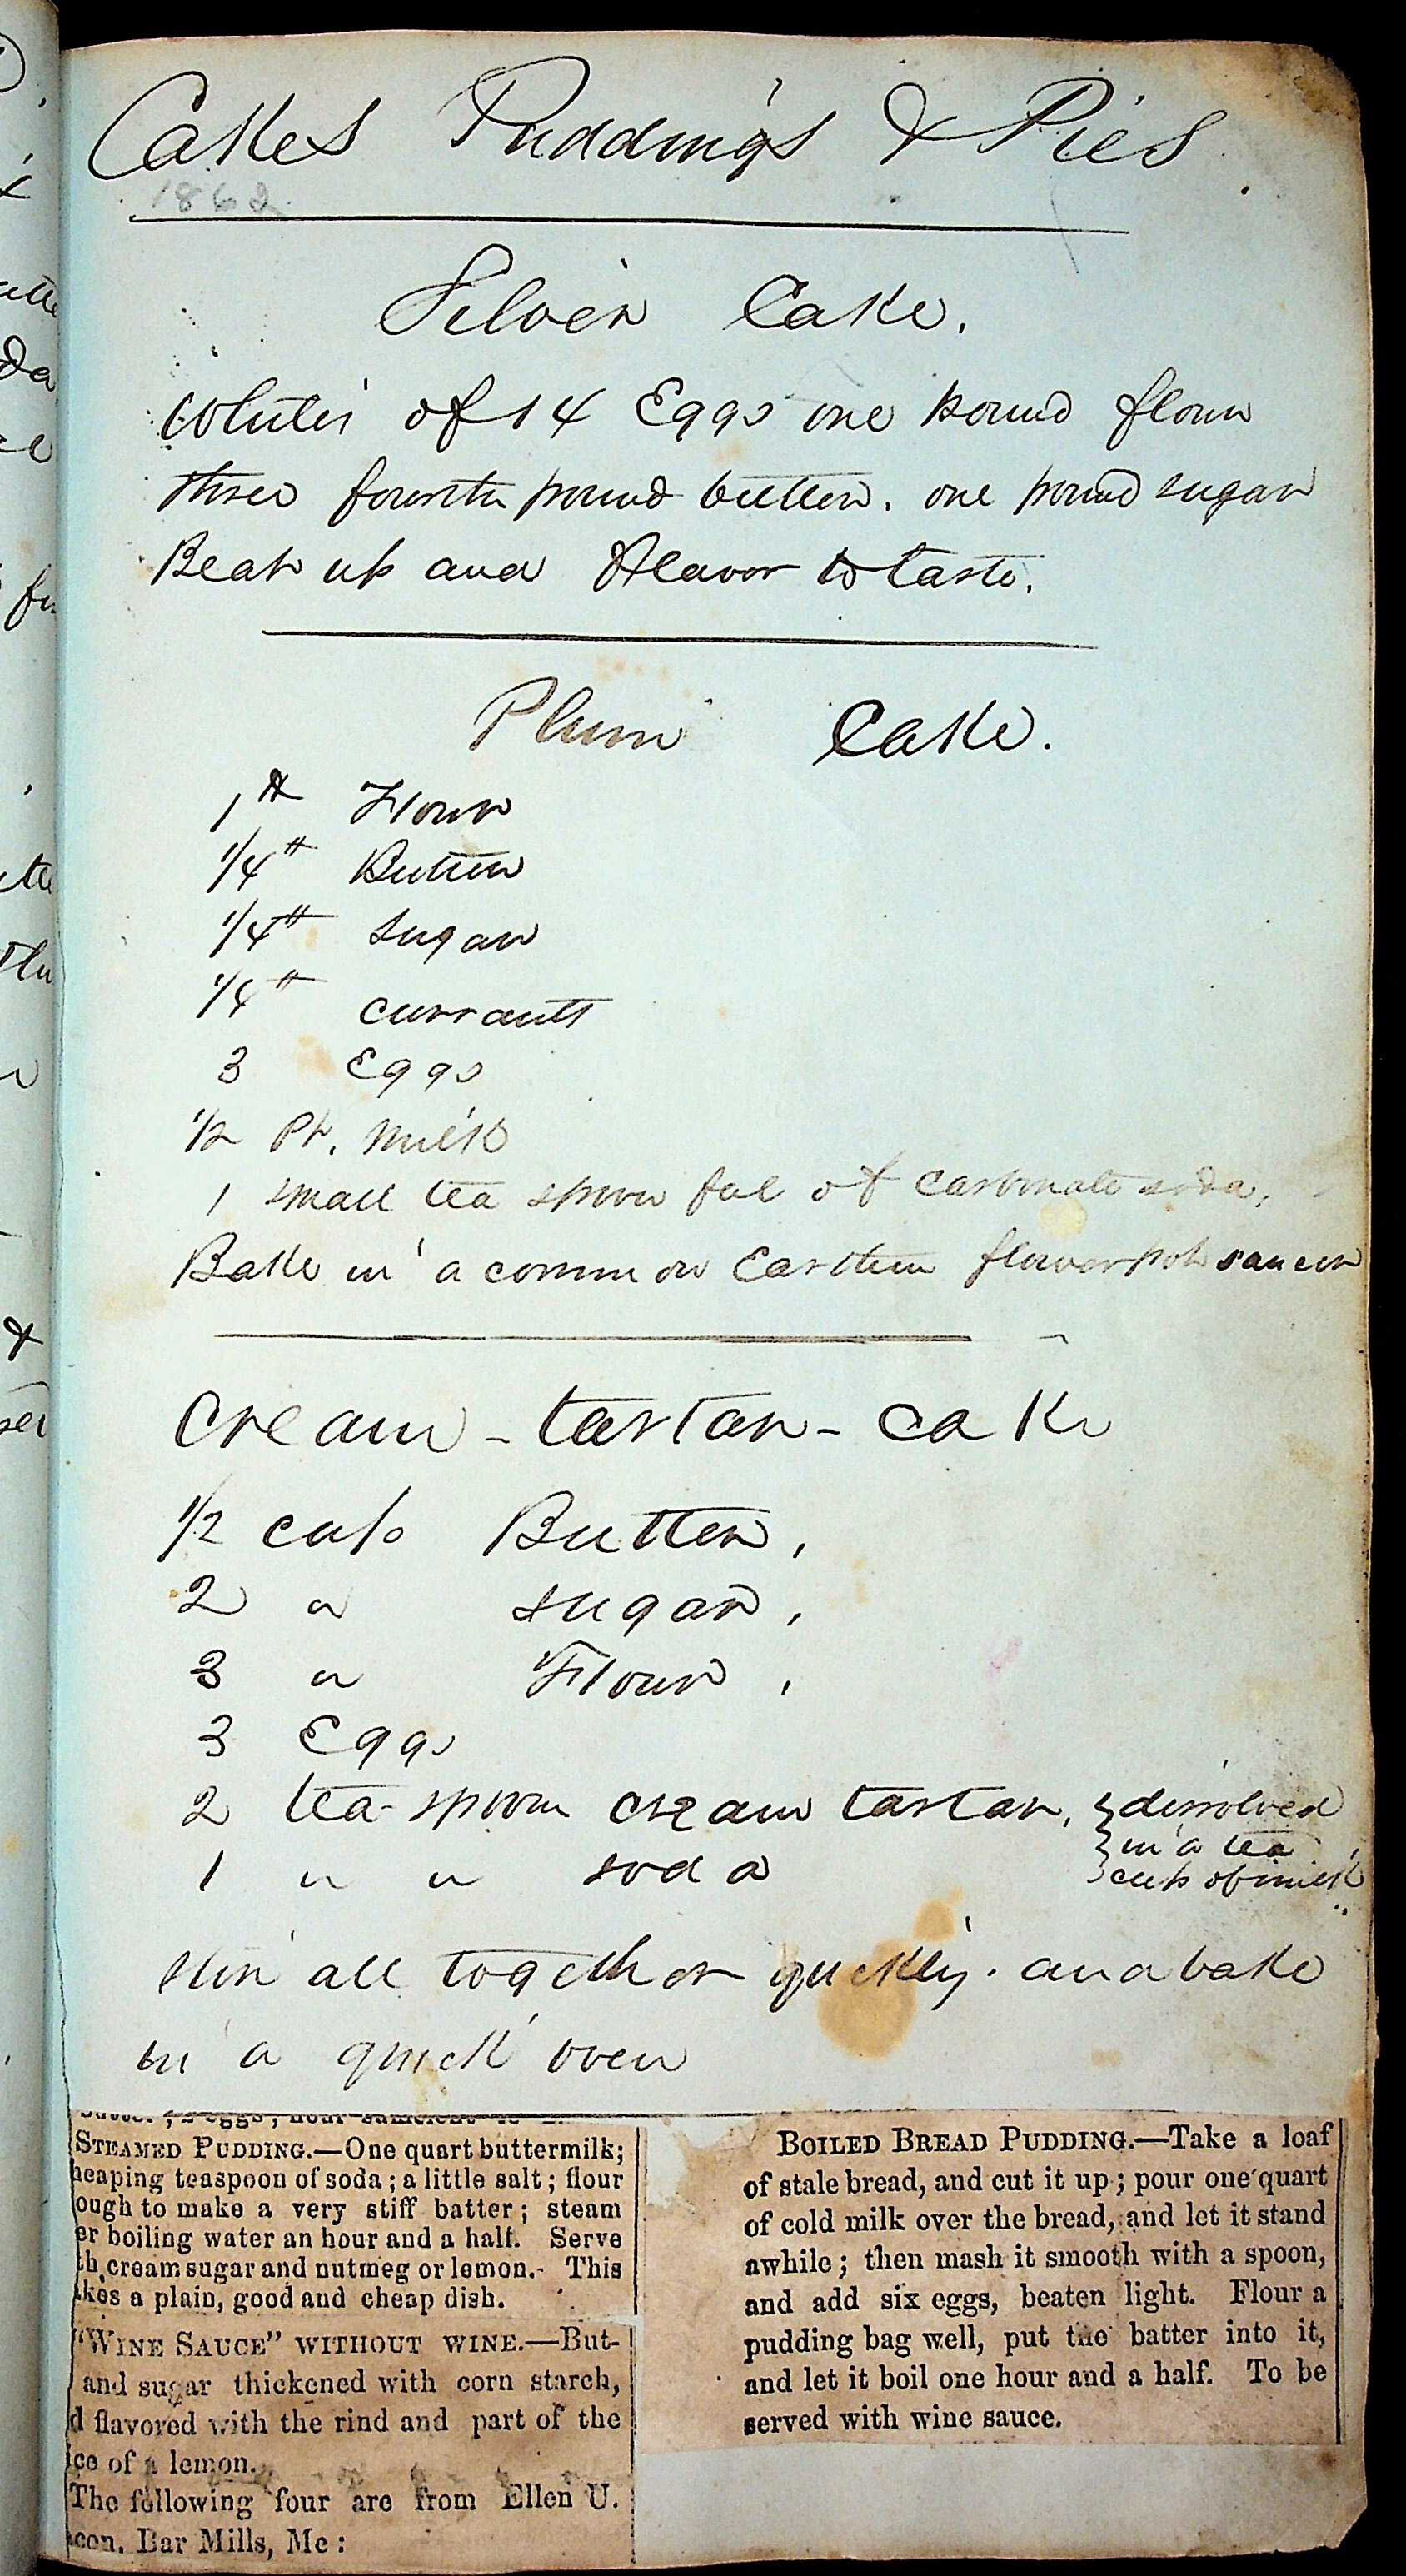 Cakes Puddings & Pies
1862
Silver Cake.
Whites of 14 Eggs one pound flour
three fourth pound butter. one pound sugar
Beat up and flavor to taste.
Plum Cake.
1 ℔ Flour
1/4 ℔ Butter
1/4 ℔ Sugar
1/4 ℔ currants
3 Eggs
1/2 Pt. Milk
1 small tea spoon ful of Carbonate soda,
Bake in a common Earthen flowerpot saucer
Cream-tartar-cake
1/2 cup Butter,
2 " sugar,
3 " Flour,
3 Eggs
2 tea-spoon cream tartar, } dissolved
} in a tea
1 " " soda } cup of milk
stir all together quickly. and bake
in a quick oven
STEAMED PUDDING.—One quart buttermilk;
heaping teaspoon of soda; a little salt; flour
ough to make a very stiff batter; steam
er boiling water an hour and a half. Serve
th cream sugar and nutmeg or lemon. This
kes a plain, good and cheap dish.
"WINE SAUCE" WITHOUT WINE.—But-
and sugar thickened with corn starch,
d flavored with the rind and part of the
ice of a lemon.
The following four are from Ellen U.
con, Bar Mills, Me:
BOILED BREAD PUDDING.—Take a loaf
of stale bread, and cut it up; pour one quart
of cold milk over the bread, and let it stand
awhile; then mash it smooth with a spoon,
and add six eggs, beaten light. Flour a
pudding bag well, put the batter into it,
and let it boil one hour and a half. To be
served with wine sauce.